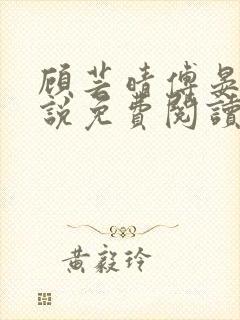 顾芸晴傅晏
說免費閱讀
黃毅玲